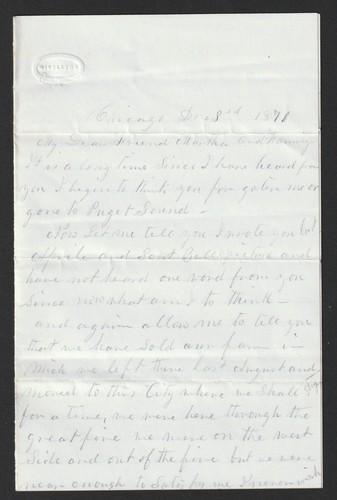 Chicago Dec 3rd 1871
My Dear Friend Martha and
It is a long time Since I have heard from
you I begin to think you forgoten me or
gone to Puget Sound -
Now Let me tell you I wrote you
and Sent picture and
have not heard one word from you
Since now what am I to think -
and again allow me to tell you
that we have Sold our farm in
Mich we left there last August and
moved to this City where we Shall
for a time, we were here through the
great fire we were on the west
Side and out of the fire but we were
near enough to Satisfy me